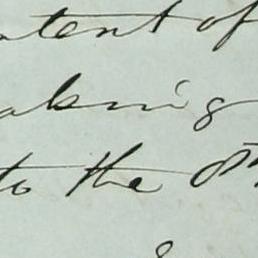 intent of
aking
to the